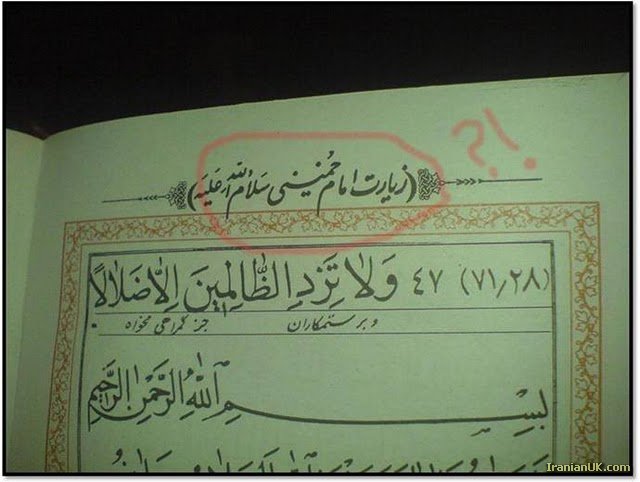 ؟!
(زیارت امام خمینی سلام الله علیه)
(۷۱/۲۸) ۴۷ وَلاٰ تَزِدِ الظّٰالِمِینَ اِلاّٰ ضَلاٰلاً
و بر ستمکاران جز گمراهی مخواه
بِسْمِ اللّٰهِ الرَّحْمٰنِ الرَّحِیمِ
IranianUK.com